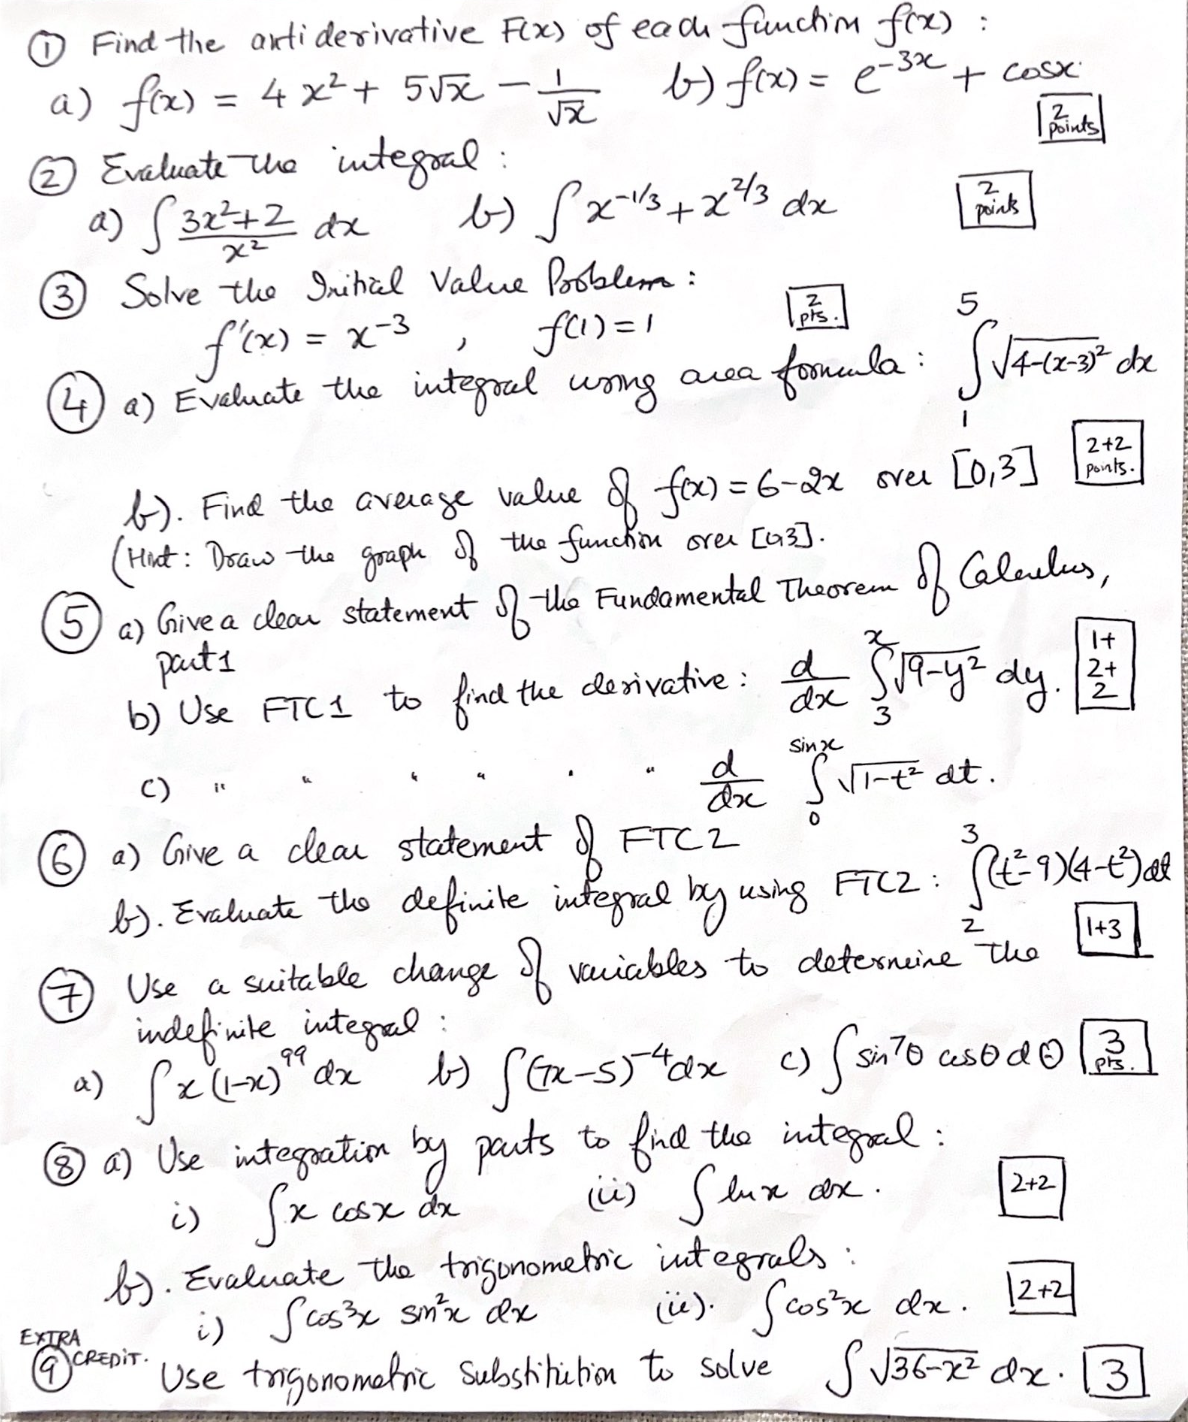 ① Find the antiderivative F(x) of each function f(x) :
a) f(x) = 4x² + 5√x − 1/√x b) f(x) = e^(-3x) + cosx
2 points
② Evaluate the integral :
a) ∫ (3x²+2)/x² dx b) ∫ x^(-1/3) + x^(2/3) dx 2 points
③ Solve the Initial Value Problem :
f'(x) = x^(-3) , f(1) = 1 2 pts.
④ a) Evaluate the integral using area formula : ∫_1^5 √(4-(x-3)²) dx
2+2 points.
b). Find the average value of f(x) = 6-2x over [0,3]
(Hint : Draw the graph of the function over [0,3].
⑤ a) Give a clear statement of the Fundamental Theorem of Calculus,
part 1
b) Use FTC1 to find the derivative : d/dx ∫_3^x √(9-y²) dy. 1+ 2+ 2
c) " " " " " " d/dx ∫_0^(sinx) √(1-t²) dt.
⑥ a) Give a clear statement of FTC2
b). Evaluate the definite integral by using FTC2 : ∫_2^3 (t²-9)(4-t²) dt
1+3
⑦ Use a suitable change of variables to determine the
indefinite integral :
a) ∫ x(1-x)^99 dx b) ∫ (7x-5)^(-4) dx c) ∫ sin⁷θ cosθ dθ 3 pts.
⑧ a) Use integration by parts to find the integral :
i) ∫ x cosx dx (ii) ∫ lnx dx. 2+2
b). Evaluate the trigonometric integrals :
i) ∫ cos³x sin²x dx (ii). ∫ cos²x dx. 2+2
EXTRA CREDIT.
⑨ Use trigonometric substitution to solve ∫ √(36-x²) dx. 3